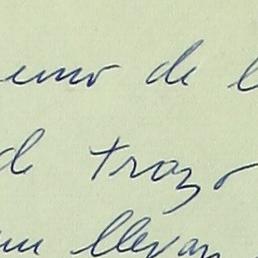 uno de l
de trazo
llevan